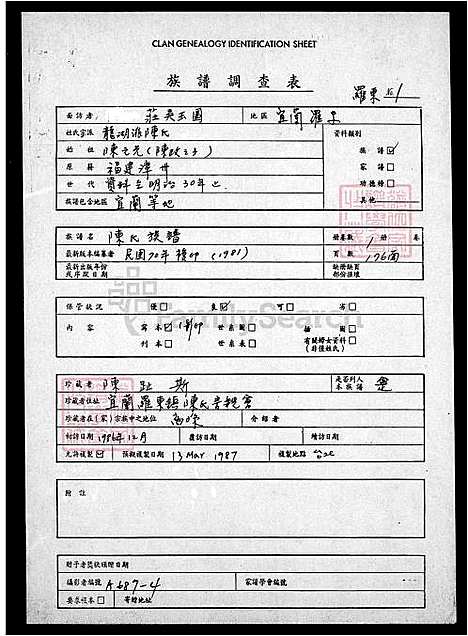 CLAN GENEALOGY IDENTIFICATION SHEET
族譜調查表
羅東 1
面訪者 莊吳玉圖 地區 宜蘭羅東
姓氏宗派 龍湖派陳氏 資料類別
姓祖 陳元光(陳政之子) 族譜
原籍 福建漳州 家譜
世代 資料至明治30年止 功德榜
族譜包含地區 宜蘭等地 其他
族譜名 陳氏族譜 冊卷數 1 冊 卷
最新版本編纂者 民國70年複印 (1981) 頁數 176面
最新出版年份 缺冊缺頁
或序跋日期 部份推壞
保管狀況 優 良 可 劣
內容 寫本 影印 世系圖 插圖 有關婦女資料
刊本 世系表 (非僅姓氏)
珍藏者 陳趾斯 是否列入本族譜 是
珍藏者住址 宜蘭羅東鎮陳氏宗親會
珍藏者在(家)宗族中之地位 介紹者
初訪日期 1986年12月 覆訪日期 續訪日期
允許複製 預約複製日期 13 May 1987 複製地點 台北
附註
贈予者獎狀頒贈日期
攝影者編號 A687-4 家譜學會編號
要求領本 寄贈地址
FamilySearch